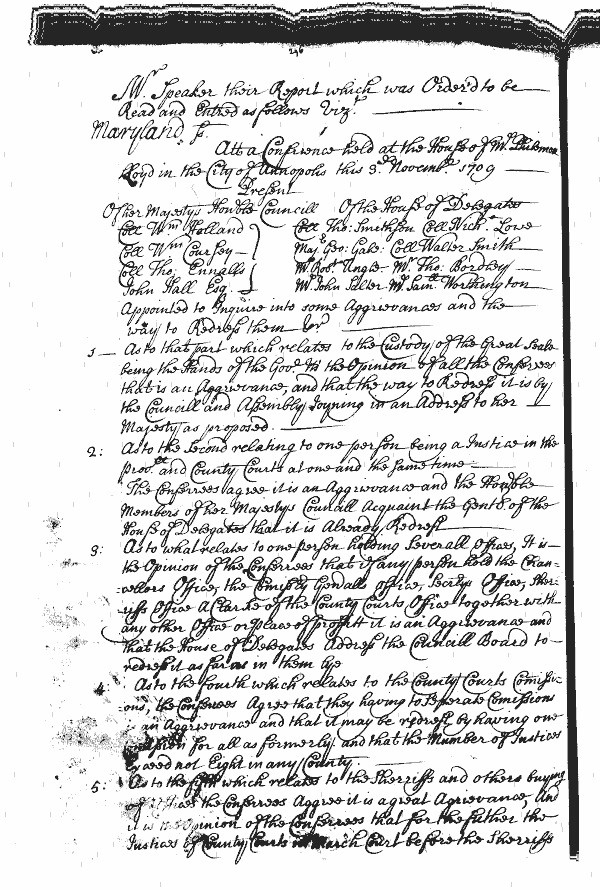 246
Mr. Speaker their Report which was Order'd to be
Read and Entred as follows Vizt.
Maryland ss.
Att a Conference held at the House of Mr. Philemon
Lloyd in the City of Annopolis this 3d Novembr. 1709
Present
Of her Majestys Honble Councill Of the House of Delegates
Coll Wm Holland Coll Tho: Smithson Coll Nich. Lowe
Coll Wm Coursey Majr Geo: Gale: Coll Walter Smith
Coll Tho: Ennalls Mr. Robt. Ungle Mr. Tho: Bordley
John Hall Esq. Mr. John Salter Mr. Saml. Worthington
Appointed to Inquire into some Aggrievances and the
way to Redress them
1 As to that part which relates to the Custody of the Great Seale
being the Hands of the Govr. Its the Opinion of all the Conferrees
that is an Aggrievance, and that the way to Redress it is by
the Councill and Assembly Joyning in an Address to her
Majesty as proposed.
2: As to the Second relating to one person being a Justice in the
provll. and County Courts at one and the same time
The Conferrees agree it is an Aggrievance and the Honble
Members of her Majestys Councill Acquaint the Gentl. of the
House of Delegates that it is Already Redrest
3: As to what relates to one person holding Severall Offices, It is
the Opinion of the Conferrees that if any person hold the Chan=
cellors Office, the Comissy Genalls office, Secrtys Office, Sher=
riffs Office A Clarke of the County Courts Office together with
any other Office or place of profitt it is an Aggrievance and
that the House of Delegates Address the Council Board to
redress it as far as in them lye
4 As to the fourth which relates to the County Courts Comissi=
ons, the Conferrees Agree that they having to Seperate Comissions
an Aggrievance and that it may be redrest by having one
for all as formerly and that the Number of Justices
exceed not Eight in any County.
5: As to the fifth which relates to the Sherriffs and others buying
of Offices the Conferrees Aggree it is a great Agrievance, And
it is the Opinion of the Conferrees that for the future the
Justices of County Courts in March Court before the Sherriffs